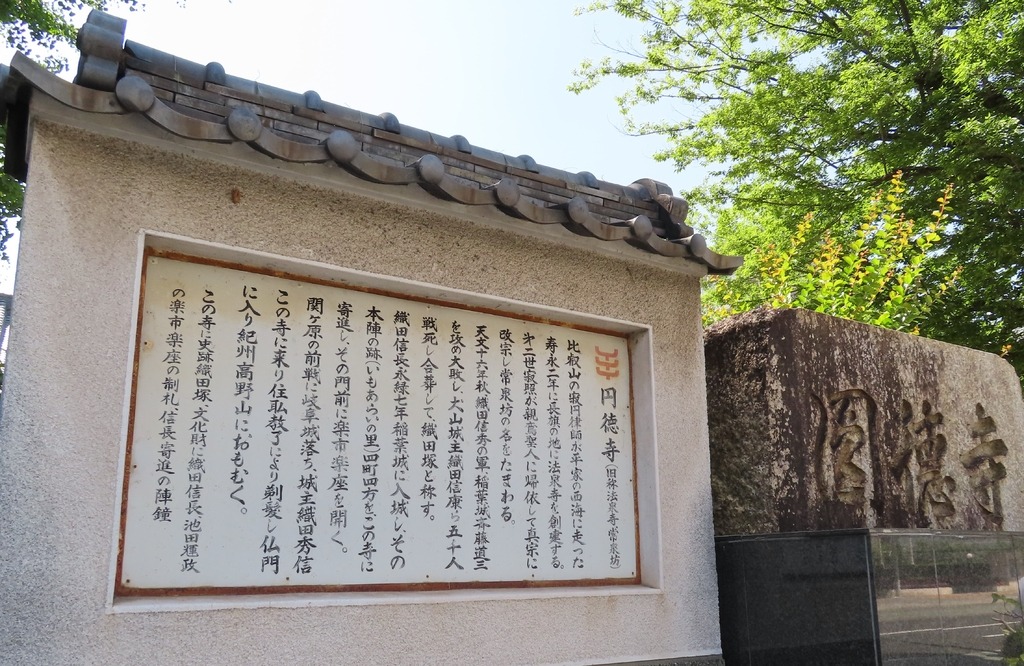 円徳寺(旧称法泉寺常泉坊)
比叡山の寂円律師水平家の西海に走った
寿永二年に長旗の地に法泉寺を創建する。
才二世寂照が親鸞聖人に帰依して真宗に
改宗し常泉坊の名をたまわる。
天文十六年秋織田信秀の軍稲葉城斉藤道三
を攻め大敗し、犬山城主織田信康ら五千人
戦死し合葬して織田塚と称す。
織田信長永禄七年稲葉城に入城しその
本陣の跡(いもあらいの里)四町四方をこの寺に
寄進し、その門前に楽市楽座を開く。
関ヶ原の前戦に岐阜城落ち、城主織田秀信
この寺に来り住職教了により剃髪し仏門
に入り紀州高野山におもむく。
この寺に史跡織田塚、文化財に織田信長、池田輝政
の楽市楽座の制札、信長寄進の陣鐘
圓徳寺